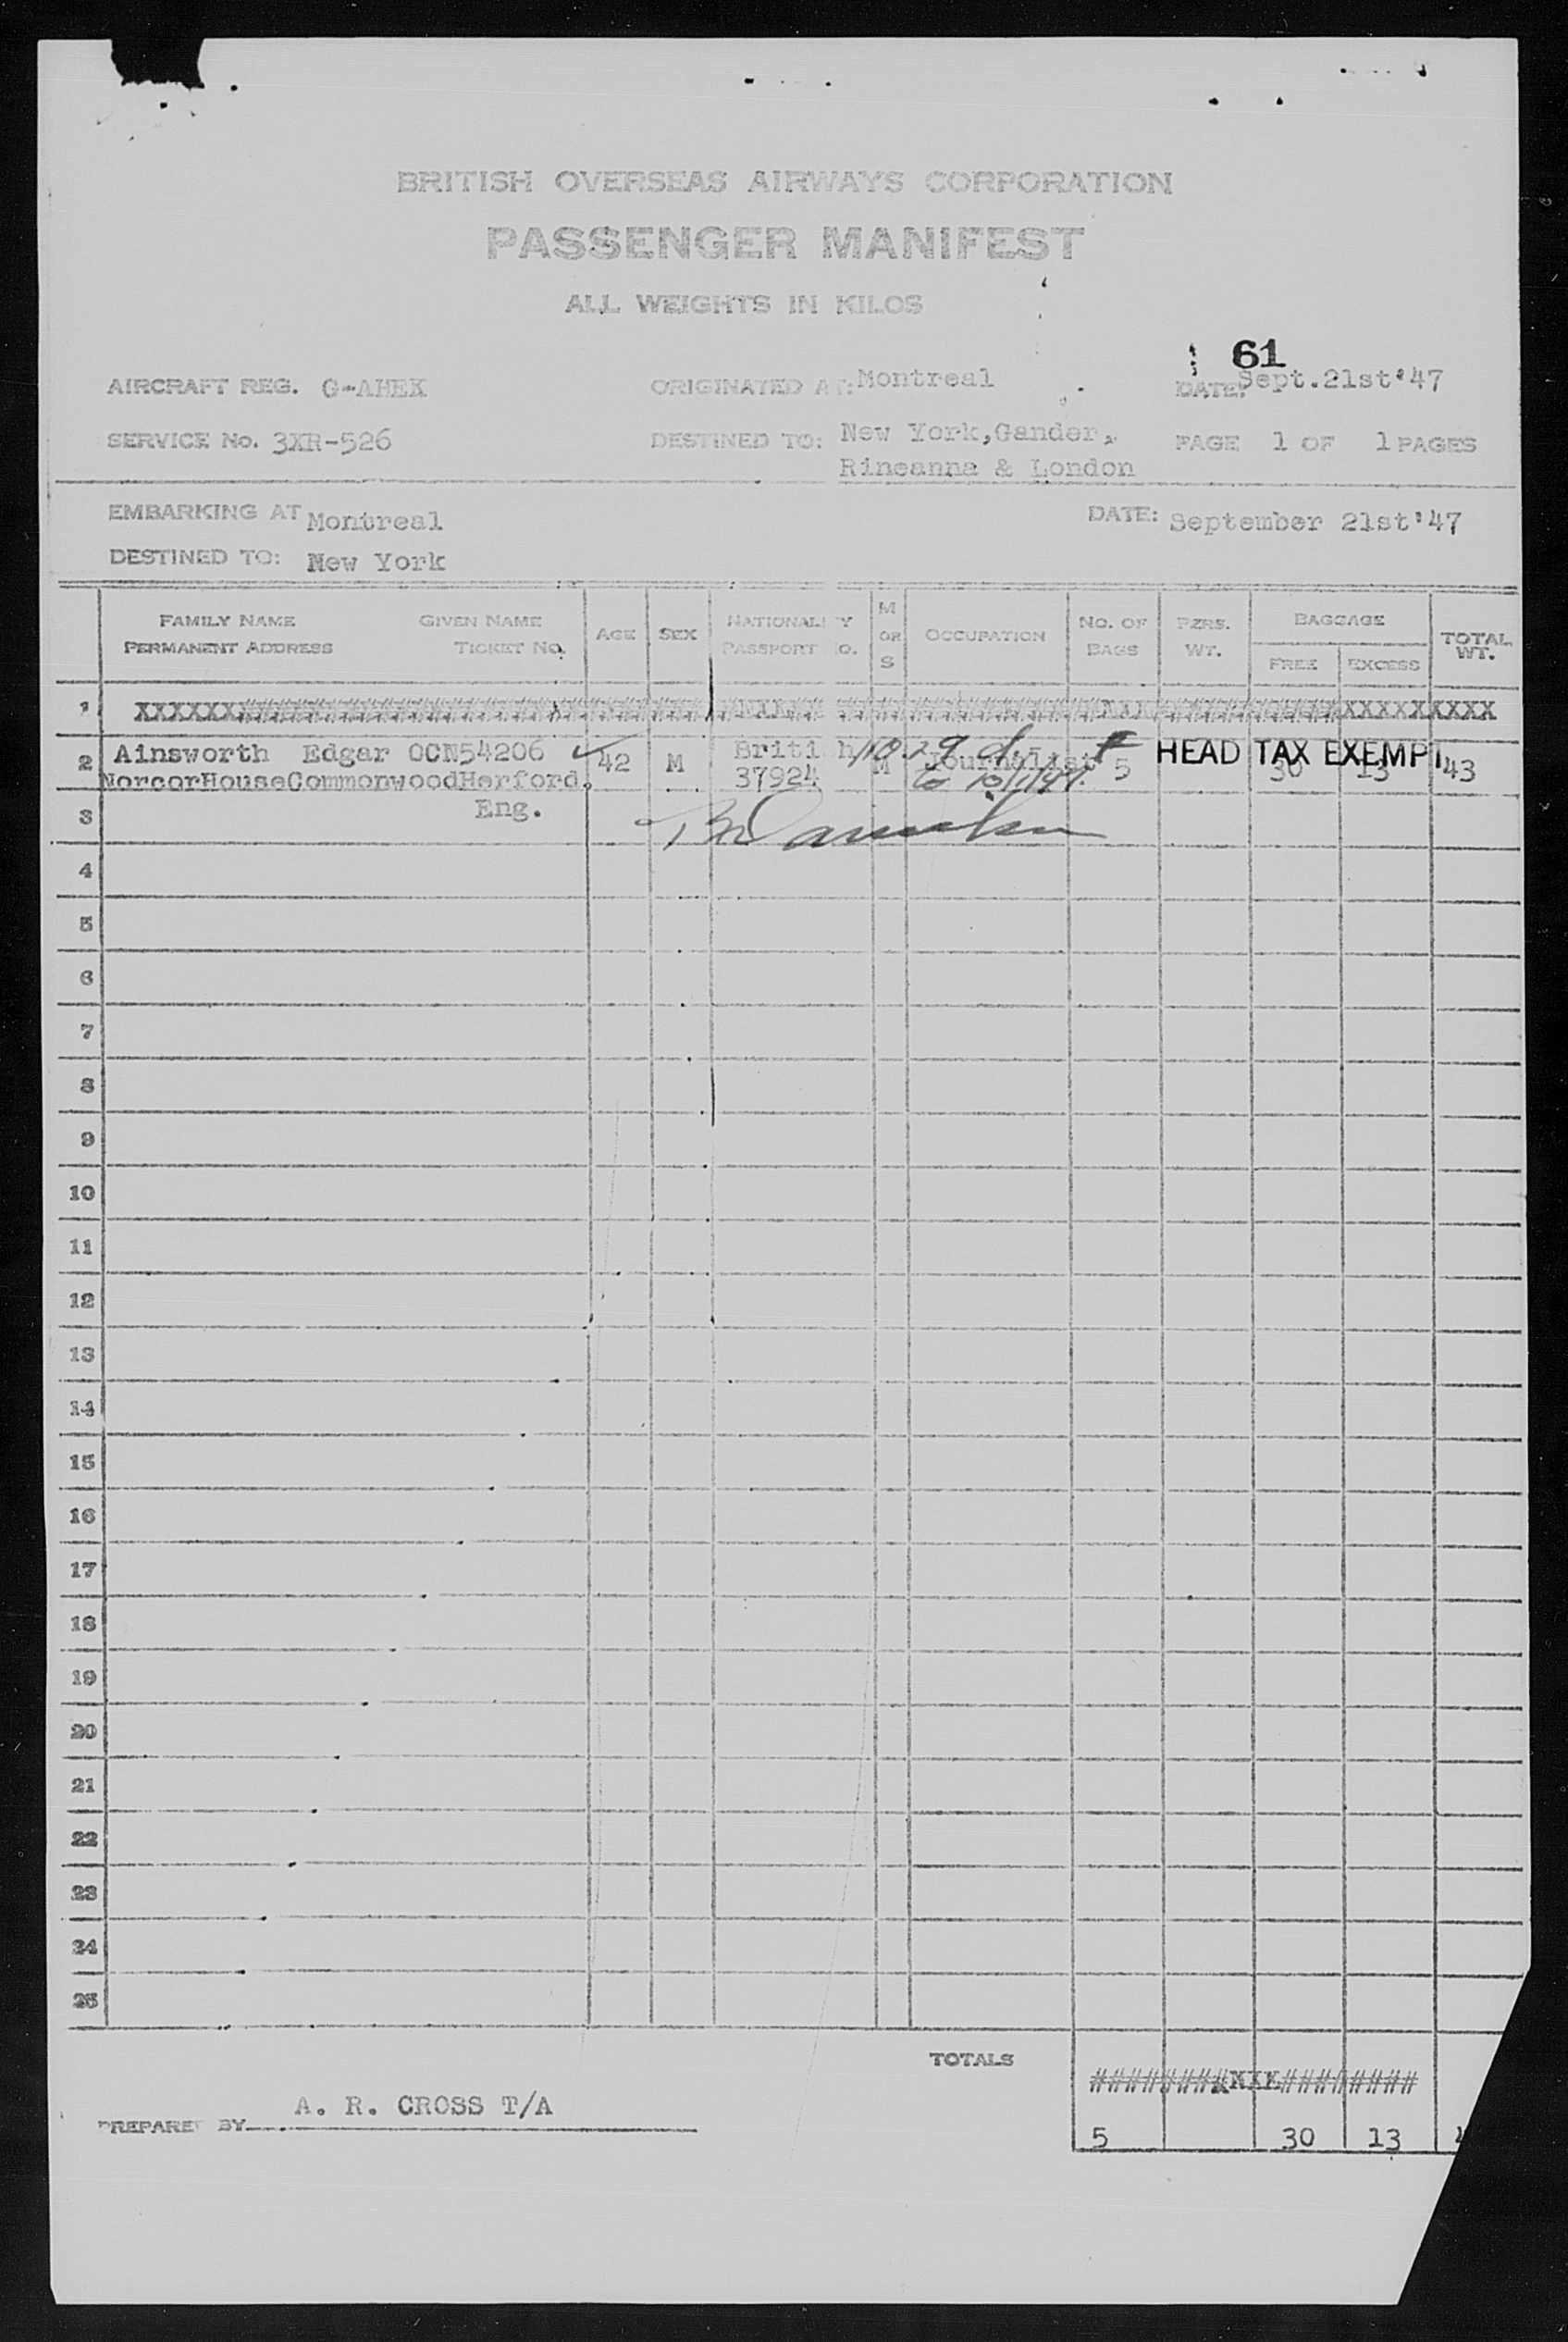 BRITISH OVERSEAS AIRWAYS CORPORATION
PASSENGER MANIFEST
ALL WEIGHTS IN KILOS
61
AIRCRAFT REG. G-AHEK ORIGINATED AT: Montreal DATE: Sept.21st'47
SERVICE No. 3XR-526 DESTINED TO: New York,Gander, PAGE 1 OF 1 PAGES
Rineanna & London
EMBARKING AT Montreal DATE: September 21st'47
DESTINED TO: New York
FAMILY NAME GIVEN NAME AGE SEX NATIONALITY M OR S OCCUPATION NO. OF BAGS PERS. WT. BAGGAGE TOTAL WT.
PERMANENT ADDRESS TICKET NO. PASSPORT NO. FREE EXCESS
1
2 Ainsworth Edgar OCN54206 42 M British M Journalist 5 HEAD TAX EXEMPT 30 13 43
NorcorHouseCommonwoodHerford. 37924
3 Eng.
4
5
6
7
8
9
10
11
12
13
14
15
16
17
18
19
20
21
22
23
24
25
TOTALS
A. R. CROSS T/A
PREPARED BY
5 30 13